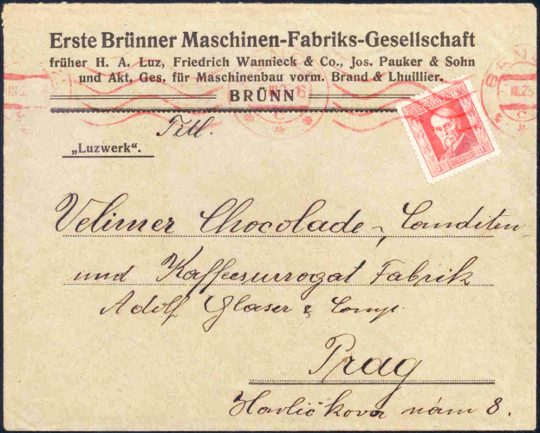 Erste Brünner Maschinen-Fabriks-Gesellschaft
früher H. A. Luz, Friedrich Wannieck & Co., Jos. Pauker & Sohn
und Akt. Ges. für Maschinenbau vorm. Brand & Lhuillier.
BRÜNN
Titl.
„Luzwerk“.
Velimer Chocolade-, Canditen
und Kaffeesurrogat Fabrik
Adolf Glaser & Comp.
Prag
Havličkovo nám 8.